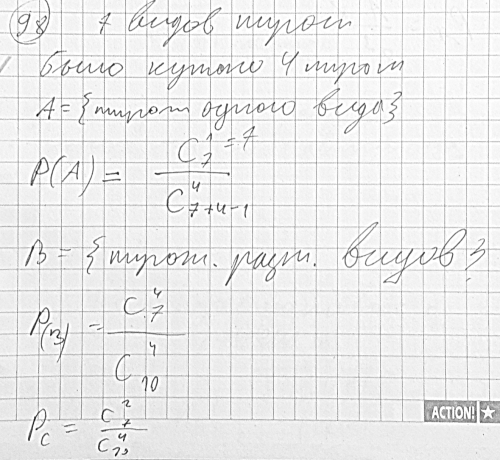 98 7 видов пирож
Было куплено 4 пирож
A = {пирож одного вида}
P(A) = C₇¹ = 7 / C⁴₇₊₄₋₁
B = {пирож. разл. видов}
P(B) = C₇⁴ / C₁₀⁴
ACTION! ★
P_C = C₇² / C₁₀⁴